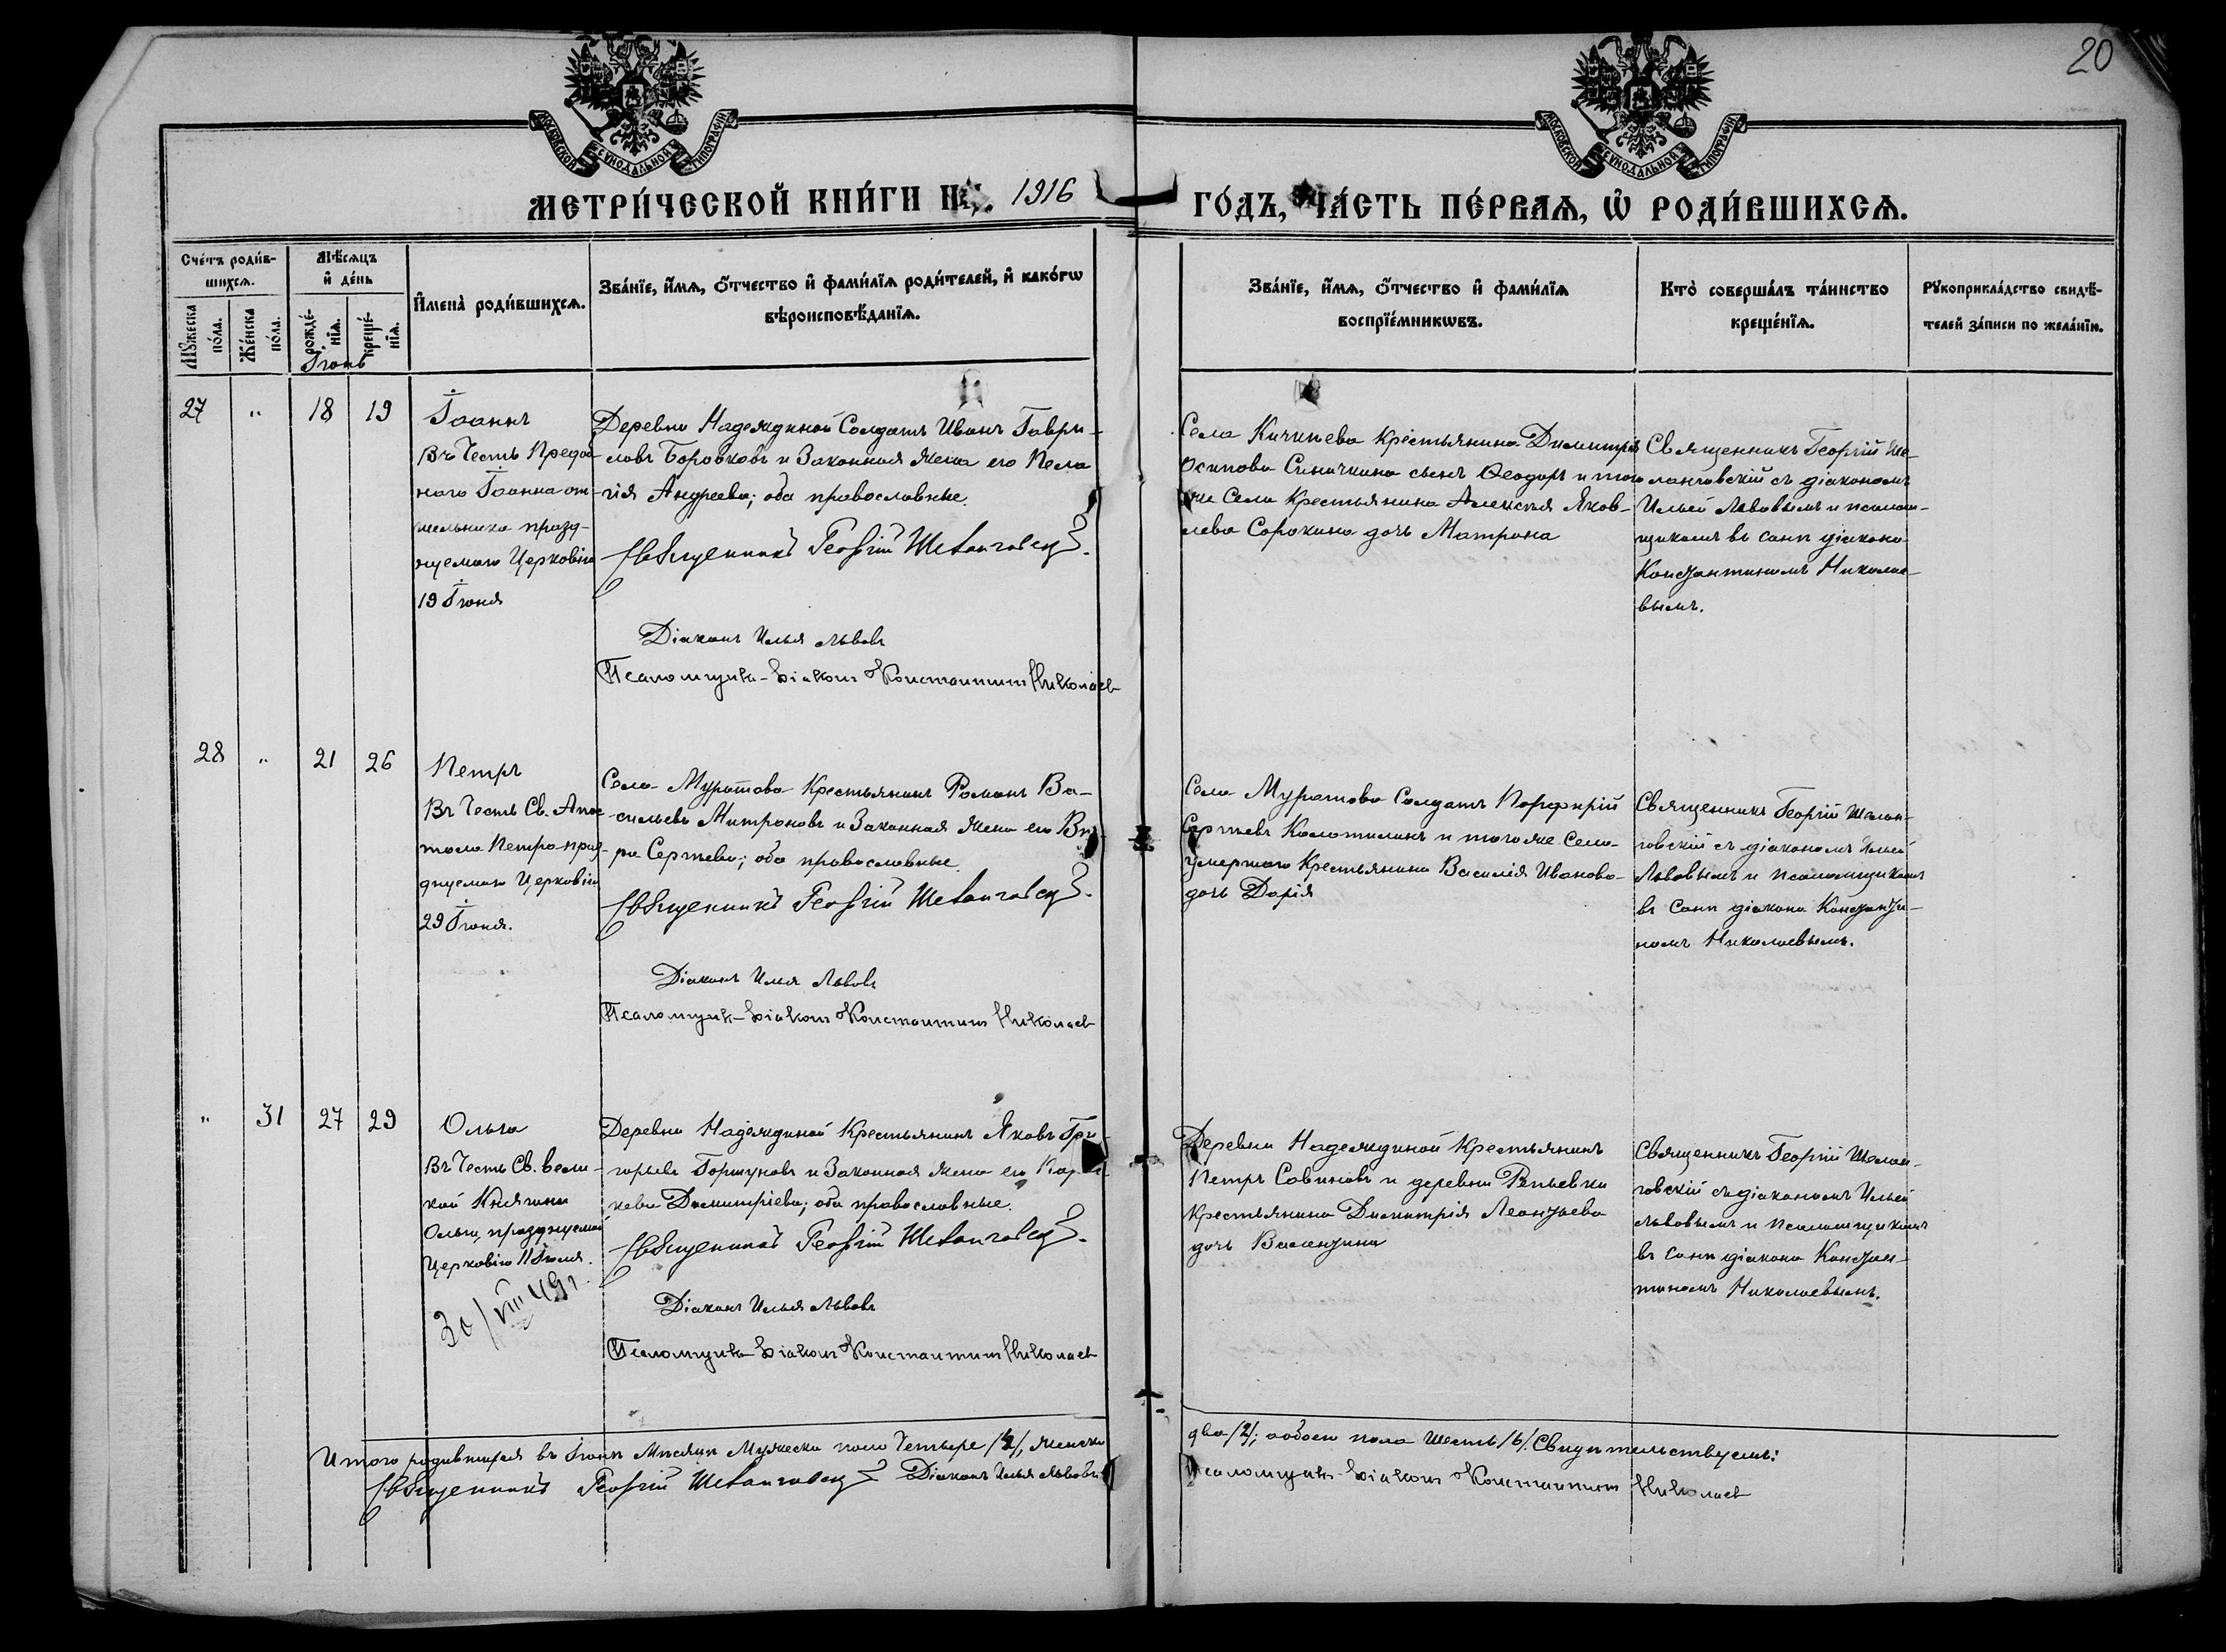 20
МОСКОВСКОЙ СѴНОДАЛЬНОЙ ТИПОГРАФІИ
МОСКОВСКОЙ СѴНОДАЛЬНОЙ ТИПОГРАФІИ
МЕТРИ́ЧЕСКОЙ КНИ́ГИ НА 1916
ГО́ДЪ, ЧА́СТЬ ПЕ́РВАѦ, Ѡ҆ РОДИ́ВШИХСѦ.
Сче́тъ роди́в-
шихсѧ.
Мꙋ́жеска по́ла.
Же́нска по́ла.
Мѣ́сѧцъ
и҆ де́нь
рожде́-нїѧ.
креще́-нїѧ.
Іюнь
И҆мена̀ роди́вшихсѧ.
Зва́нїе, и҆́мѧ, ѻ҆́тчество и҆ фами́лїѧ роди́телей, и҆ како́гѡ
вѣроисповѣ́данїѧ.
Зва́нїе, и҆́мѧ, ѻ҆́тчество и҆ фами́лїѧ
воспрїе́мникѡвъ.
Кто̀ соверша́лъ та́инство
креще́нїѧ.
Рꙋкоприкла́дство свидѣ́-
телей за́писи по жела́нїю.
27 " 18 19
Іоаннъ
Въ Честь Преподоб-
наго Іоанна от-
шельника празд-
нуемаго Церковію
19 Іюня
Деревни Надеждиной Солдатъ Иванъ Гаври-
ловъ Боровковъ и Законная жена его Пела
гія Андреева; оба православные.
Священникъ Георгій Шеланговскій.
Діаконъ Илья Львовъ
Псаломщикъ-Діаконъ Константинъ Николаевъ
Села Кичкиева Крестьянина Димитрія
Осипова Синичкина сынъ Ѳеодоръ и того
же Села Крестьянина Алексѣя Яков-
лева Сорокина дочь Матрона
Священникъ Георгій Ше-
ланговскій съ діакономъ
Ильей Львовымъ и псалом-
щикомъ въ санѣ діакона
Константиномъ Николае-
вымъ.
28 " 21 26
Петръ
Въ Честь Св. Апос
тола Петра праз-
днуемаго Церковію
29 Іюня.
Села Муратова Крестьянинъ Романъ Ва-
сильевъ Митроновъ и Законная жена его Вѣ-
ра Сергѣева; оба православные.
Священникъ Георгій Шеланговскій.
Діаконъ Илья Львовъ
Псаломщикъ-Діаконъ Константинъ Николаевъ
Села Муратова Солдатъ Порфирій
Сергѣевъ Колотилинъ и того же Села
умершаго Крестьянина Василія Иванова
дочь Дарія
Священникъ Георгій Шелан-
говскій съ діакономъ Ильей
Львовымъ и псаломщикомъ
въ санѣ діакона Константи-
номъ Николаевымъ.
" 31 27 29
Ольга
Въ Честь Св. вели-
кой Княгини
Ольги, празднуемой
Церковію 11 Іюля.
30/VIII 49г
Деревни Надеждиной Крестьянинъ Яковъ Гри-
горьевъ Горшуновъ и Законная жена его Парас-
кева Димитріева; оба православные.
Священникъ Георгій Шеланговскій.
Діаконъ Илья Львовъ
Псаломщикъ-Діаконъ Константинъ Николаевъ
Деревни Надеждиной Крестьянинъ
Петръ Савиновъ и деревни Репьевки
Крестьянина Димитрія Леонтьева
дочь Валентина
Священникъ Георгій Шелан-
говскій съ діакономъ Ильей
Львовымъ и псаломщикомъ
въ санѣ діакона Констан-
тиномъ Николаевымъ.
Итого родившихся въ Іюнѣ Мѣсяцѣ Мужеска пола Четыре /4/, женска
два /2/; а обоего пола Шесть /6/. Свидѣтельствуемъ:
Священникъ Георгій Шеланговскій Діаконъ Илья Львовъ
Псаломщикъ-Діаконъ Константинъ Николаевъ